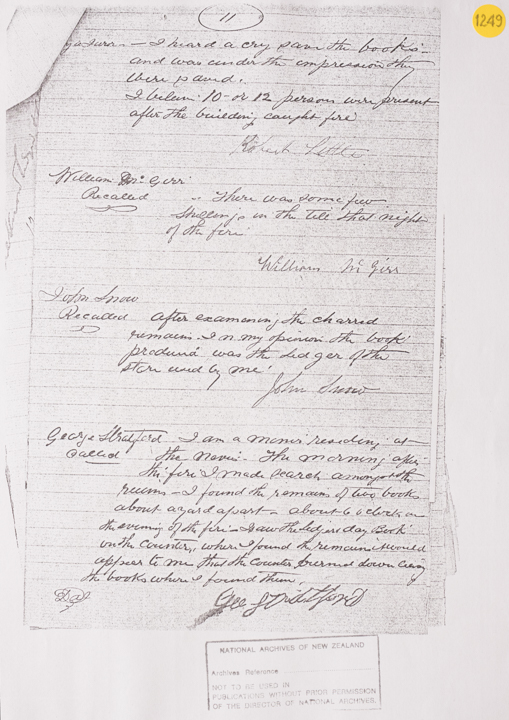 11
1249
I heard a cry save the books
and was under the impression they
were saved.
I believe 10 or 12 persons were present
after the building caught fire
Robert
William McGirr
Recalled - There was some few
shillings in the till that night
of the fire
William McGirr
John Snow
Recalled after examening the charred
remains. In my opinion the book
produced was the ledger of the
store used by me.
John Snow
George Stratford I am a miner residing at
Called the Nevis. The morning after
the fire I made search amongst the
ruins - I found the remains of two books
about a yard apart - about 6 o'clock on
the evening of the fire I saw the Ledger & day Book
on the Counter, where I found the remains it would
appear to me that the counter burned down
the books where I found them.
Geo Stratford
NATIONAL ARCHIVES OF NEW ZEALAND
Archives Reference
NOT TO BE USED IN
PUBLICATIONS WITHOUT PRIOR PERMISSION
OF THE DIRECTOR OF NATIONAL ARCHIVES.